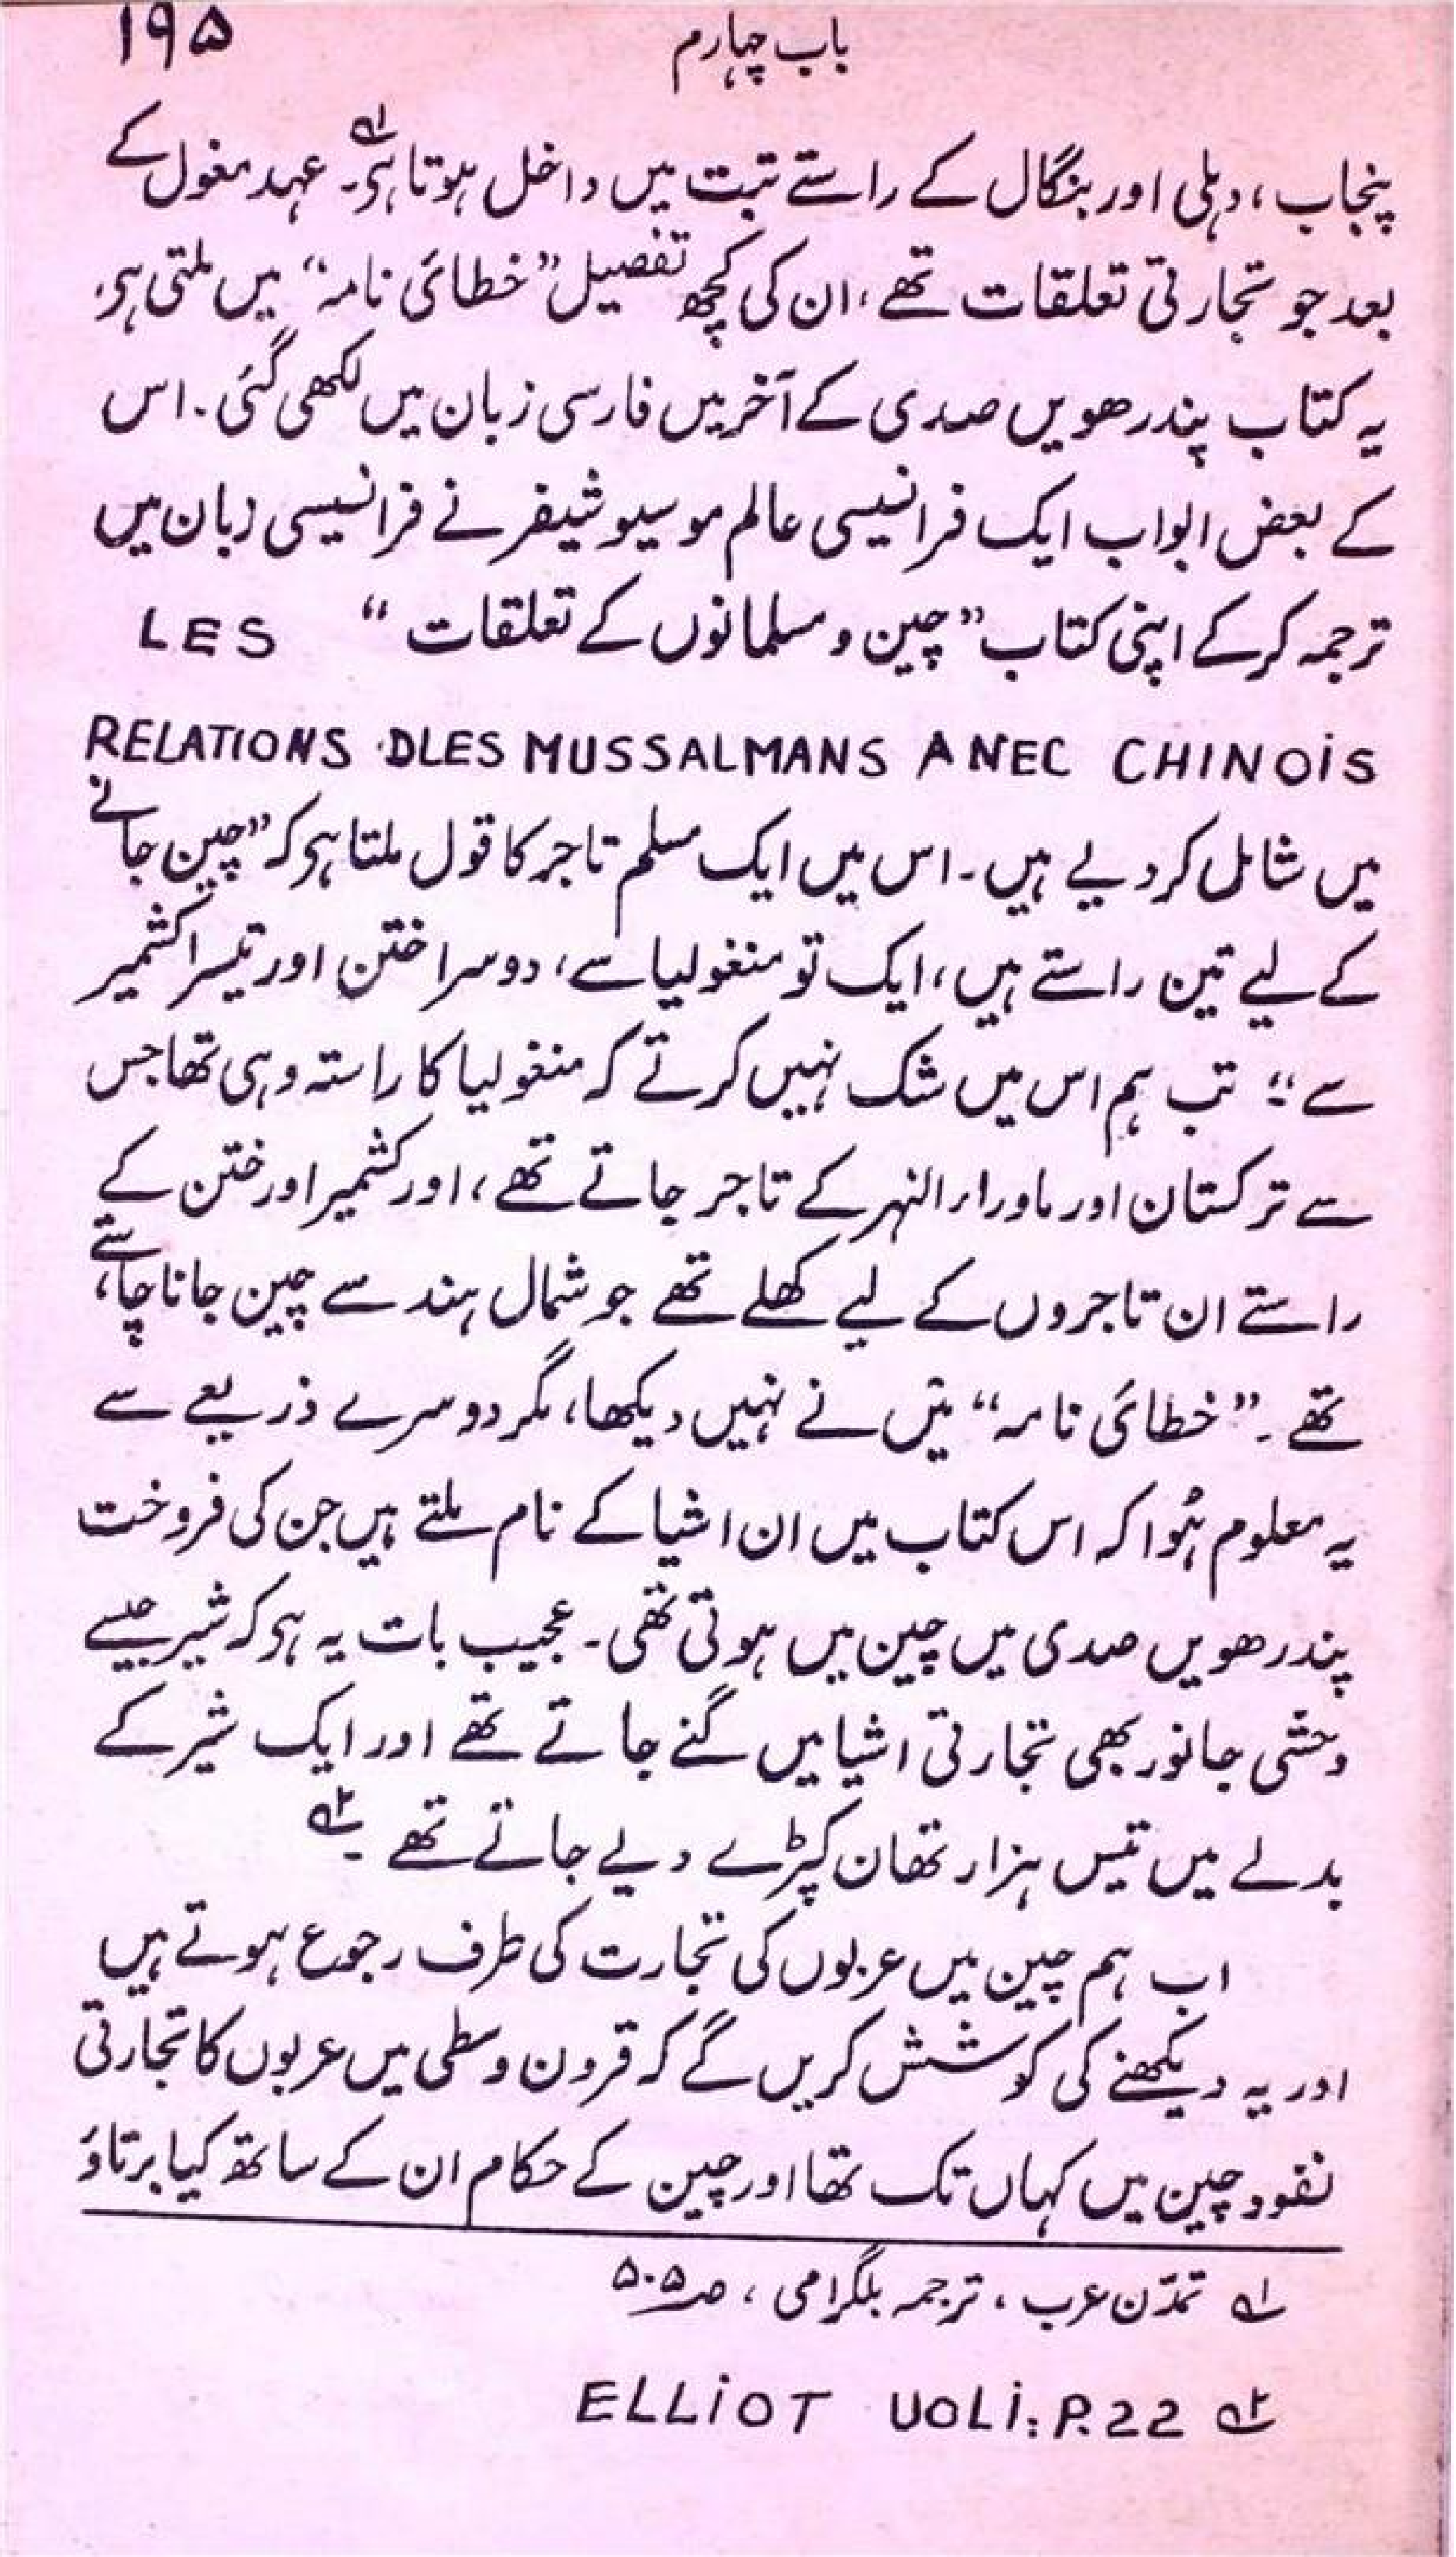 باب چہارم ۱۹۵
پنجاب، دہلی اور بنگال کے راستے تبت میں داخل ہوتا ہی۔ؔ۱ عہد مغول کے
بعد جو تجارتی تعلقات تھے، ان کی کچھ تفصیل ”خطائی نامہ“ میں ملتی ہی،
یہ کتاب پندرھویں صدی کے آخر میں فارسی زبان میں لکھی گئی۔ اس
کے بعض ابواب ایک فرانسیسی عالم موسیو شیفر نے فرانسیسی زبان میں
ترجمہ کر کے اپنی کتاب ”چین و مسلمانوں کے تعلقات“ LES
RELATIONS DLES MUSSALMANS ANEC CHINOiS
میں شامل کر دیے ہیں۔ اس میں ایک مسلم تاجر کا قول ملتا ہی کہ ”چین جانے
کے لیے تین راستے ہیں، ایک تو منغولیا سے، دوسرا ختن اور تیسرا کشمیر
سے“۔ تب ہم اس میں شک نہیں کرتے کہ منغولیا کا راستہ وہی تھا جس
سے ترکستان اور ماوراء النہر کے تاجر جاتے تھے، اور کشمیر اور ختن کے
راستے ان تاجروں کے لیے کھلے تھے جو شمال ہند سے چین جانا چاہتے
تھے۔ ”خطائی نامہ“ میں نے نہیں دیکھا، مگر دوسرے ذریعے سے
یہ معلوم ہُوا کہ اس کتاب میں ان اشیا کے نام ملتے ہیں جن کی فروخت
پندرھویں صدی میں چین میں ہوتی تھی۔ عجیب بات یہ ہی کہ شیر جیسے
وحشی جانور بھی تجارتی اشیا میں گنے جاتے تھے اور ایک شیر کے
بدلے میں تیس ہزار تھان کپڑے دیے جاتے تھے۔ؔ۲
اب ہم چین میں عربوں کی تجارت کی طرف رجوع ہوتے ہیں
اور یہ دیکھنے کی کوشش کریں گے کہ قرون وسطی میں عربوں کا تجارتی
نفود چین میں کہاں تک تھا اور چین کے حکام ان کے ساتھ کیا برتاؤ
؎۱ تمدّن عرب، ترجمہ بلگرامی، صـ ۵۰۵
؎۲ ELLiOT UOLi: P.22